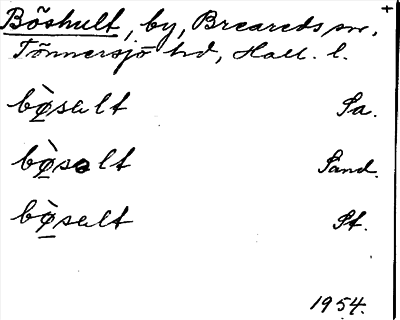 Böshult, by, Breareds sn,
Tönnersjö hd, Hall. l.
bø̀salt Sa.
bø̀sɷlt Sand.
bø̀salt St.
1954.